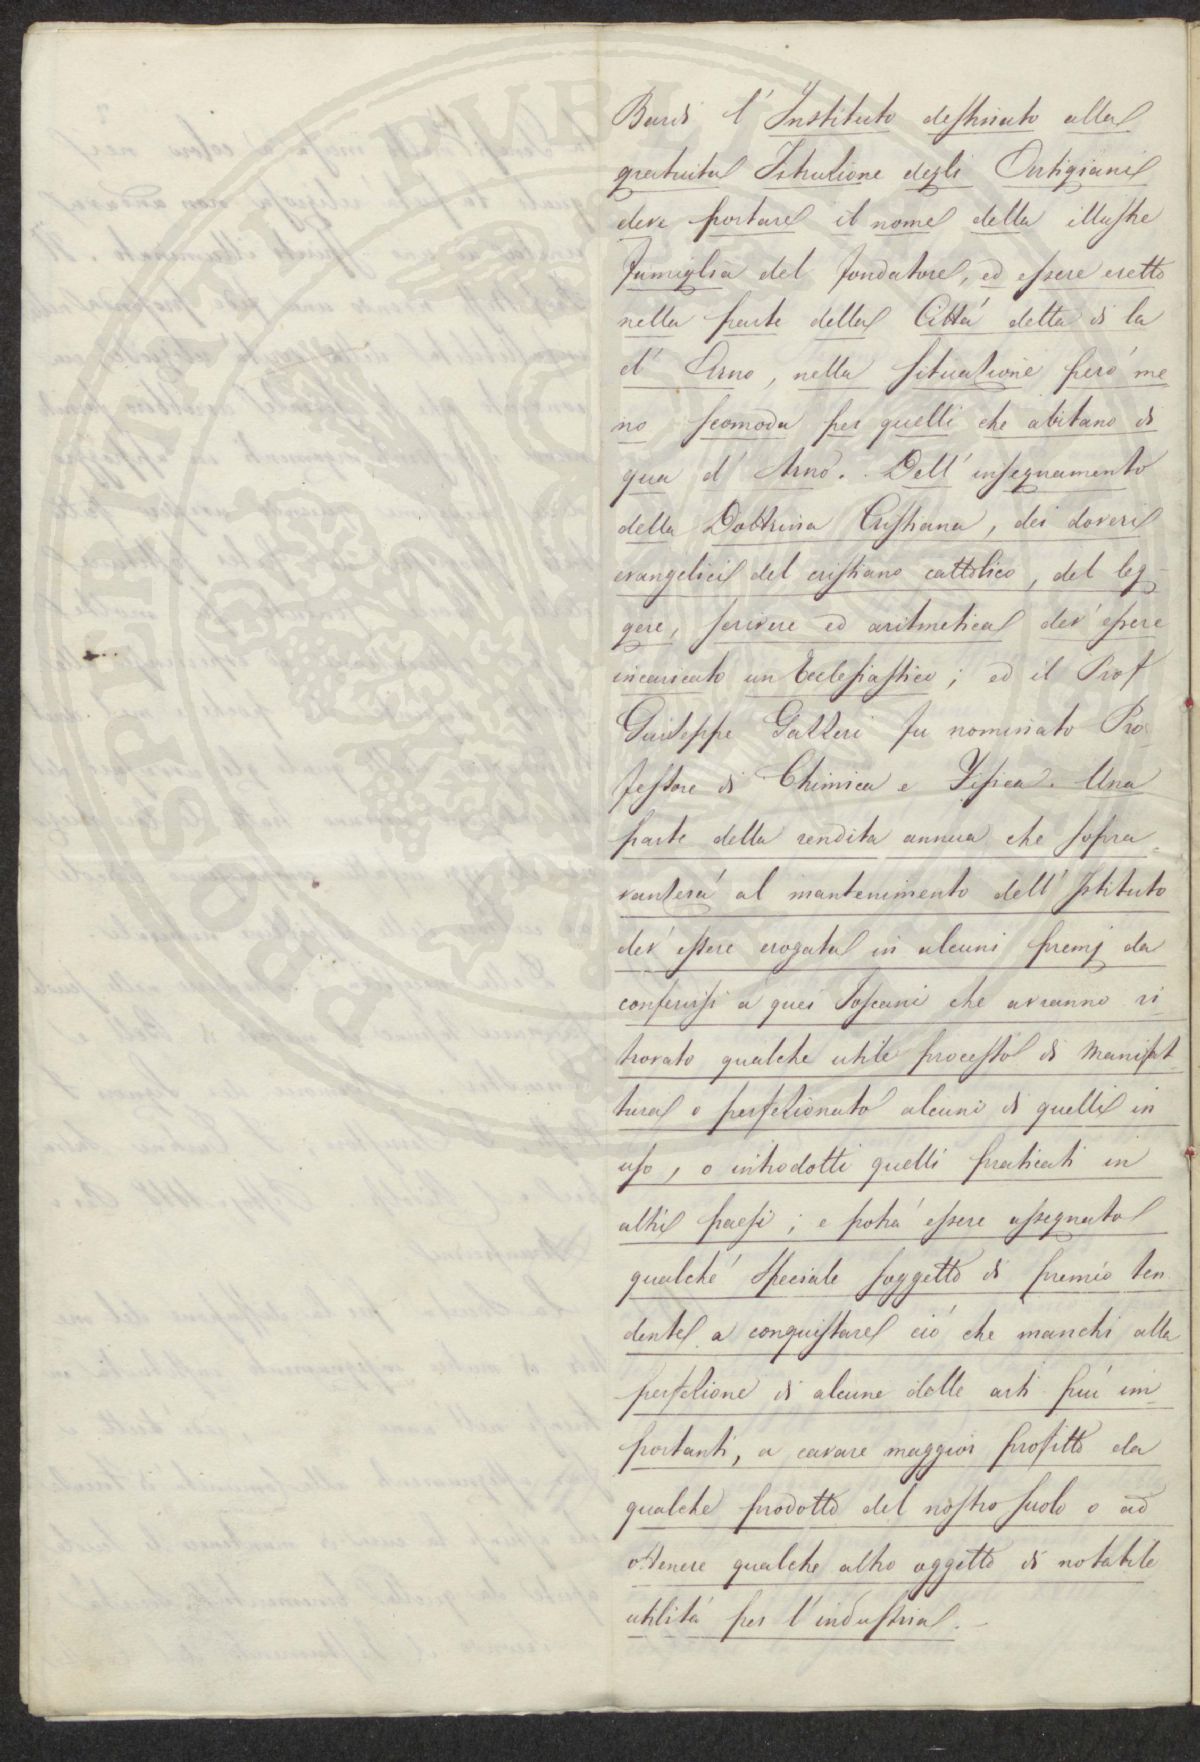 Bardi l'Instituto destinato alla
gratuita Istruzione degli Artigiani
deve portare il nome della illustre
famiglia del fondatore, ed essere eretto
nella parte della Cittá detta di la
d'Arno, nella situazione però me
no scomoda per quelli che abitano di
qua d'Arno. Dell'insegnamento
della Dottrina Cristiana, dei doveri
evangelici del cristiano cattolico, del leg-
gere, scrivere ed aritmetica dev'essere
incaricato un Ecclesiastico; ed il Prof
Giuseppe Gazzeri fu nominato Pro-
fessore di Chimica e Fisica. Una
parte della rendita annua che sopra-
vanzerá al mantenimento dell'Istituto
dev'essere erogata in alcuni premj da
conferirsi a quei Toscani che avranno ri-
trovato qualche utile processo di Manifat-
tura o perfezionato alcuni di quelli in
uso, o introdotti quelli praticati in
altri paesi; e potrá essere assegnato
qualche speciale soggetto di premio ten
dente a conquistare ció che manchi alla
perfezione di alcune delle arti piú im-
portanti, a cavare maggior profitto da
qualche prodotto del nostro suolo o ad
ottenere qualche altro oggetto di notabile
utilitá per l'industria.